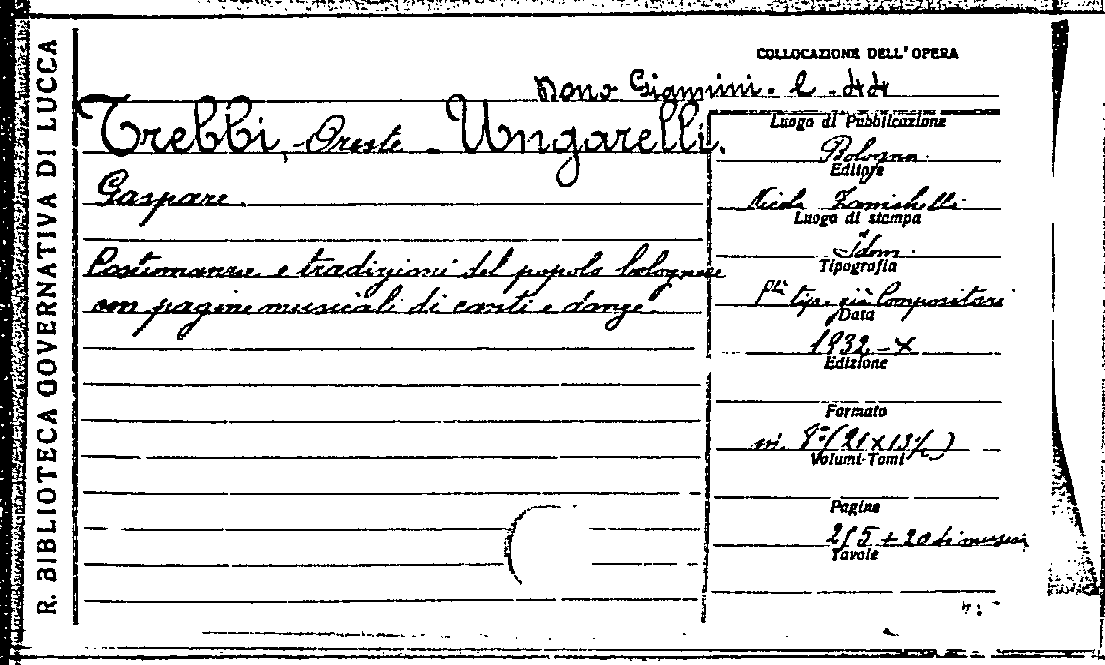 R. BIBLIOTECA GOVERNATIVA DI LUCCA
COLLOCAZIONE DELL'OPERA
Dono Giannini. l. 44
Trebbi, Oreste - Ungarelli.
Gaspare.
Costumanze e tradizioni del popolo bolognese
con pagine musicali di canti e danze.
Luogo di Pubblicazione
Bologna.
Editore
Nicola Zanichelli
Luogo di stampa
Idem.
Tipografia
tip. già Compositori
Data
1932-X
Edizione
Formato
in 8º (21x13½)
Volumi-Tomi
Pagine
215 + 20 di musica
Tavole